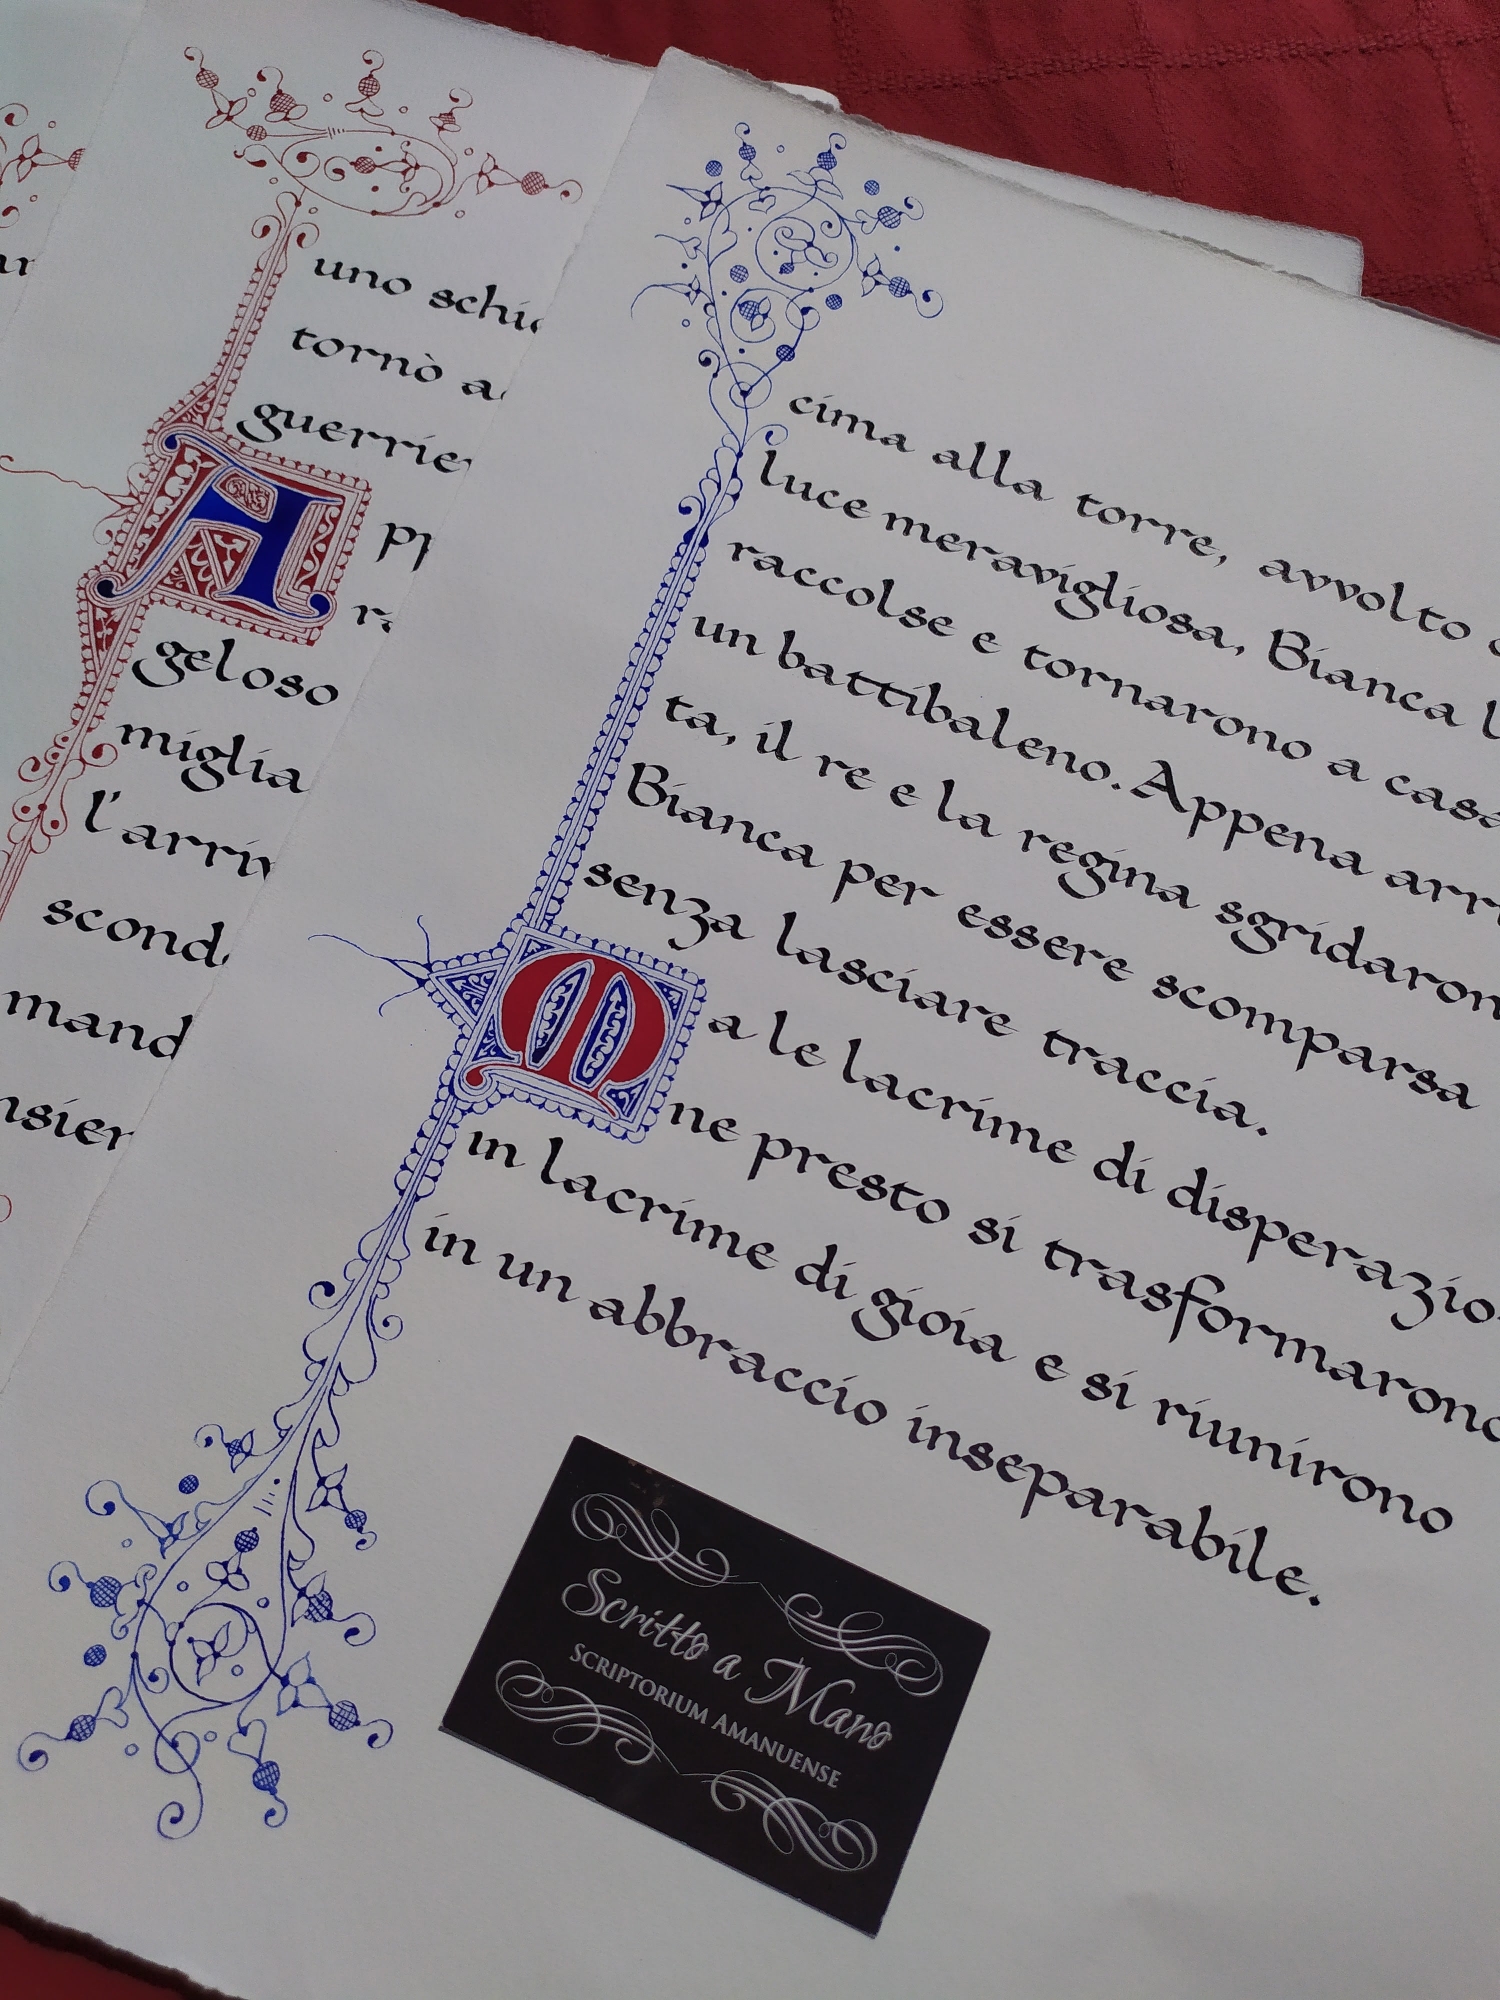 uno schi
tornò a
guerrie
App
ra
geloso
miglia
l'arriv
scond
mand
nsier
cima alla torre, avvolto
luce meravigliosa, Bianca l
raccolse e tornarono a casa
un battibaleno. Appena arri
ta, il re e la regina sgridaron
Bianca per essere scomparsa
senza lasciare traccia.
Ma le lacrime di disperazio
ne presto si trasformarono
in lacrime di gioia e si riunirono
in un abbraccio inseparabile.
Scritto a Mano
SCRIPTORIUM AMANUENSE